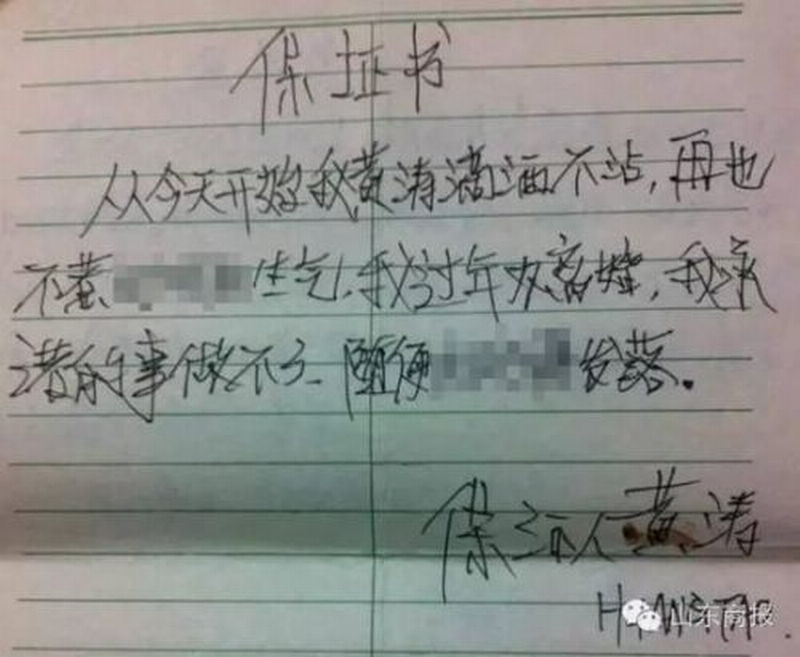 保证书
从今天开始我黄涛滴酒不沾,再也
不惹生气,我过年办离婚,我承
诺的事做不了、随便发落。
保证人黄涛
山东商报